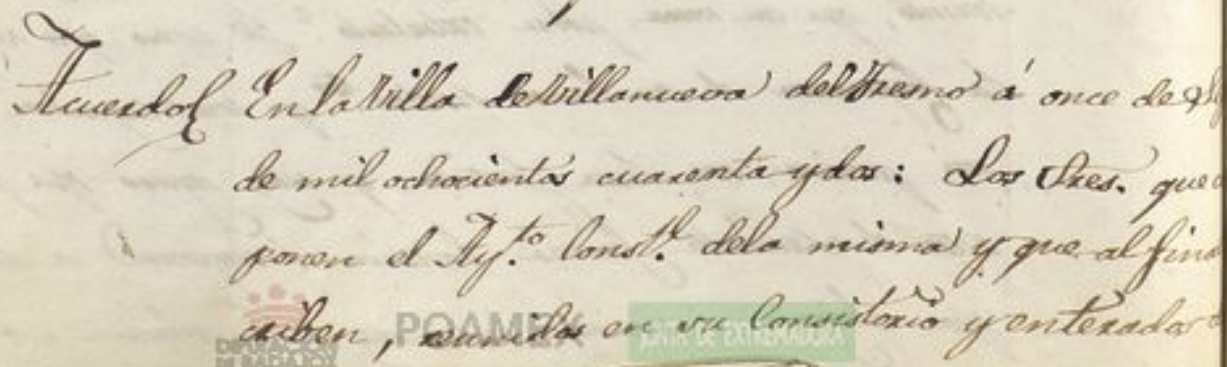 Acuerdo En la Villa de Villanueva del Fresno á once de
de mil ochocientos cuarenta y dos: Los Sres. que
ponen el Ay.to Const.l dela misma y que al fin
criben, reunidos en su Consistorio y enterados
POAMEX
JUNTA DE EXTREMADURA